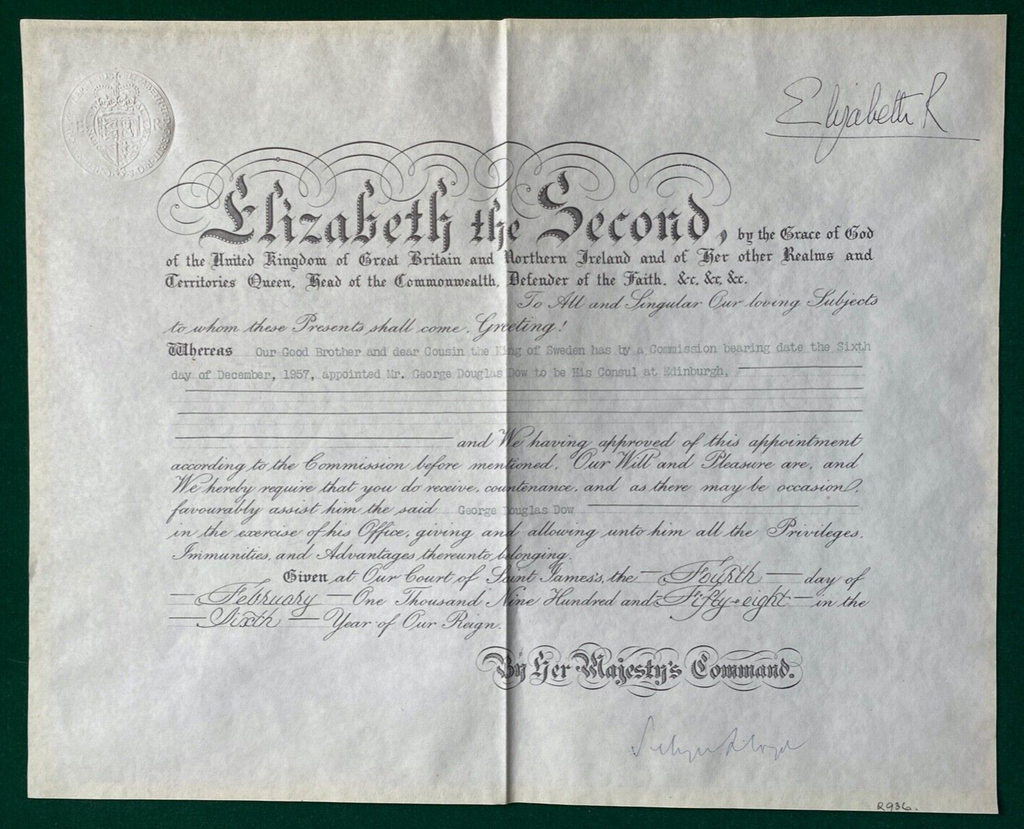 Elizabeth R
Elizabeth the Second, by the Grace of God
of the United Kingdom of Great Britain and Northern Ireland and of Her other Realms and
Territories Queen, Head of the Commonwealth, Defender of the Faith, &c, &c, &c.
To All and Singular Our loving Subjects
to whom these Presents shall come, Greeting!
Whereas Our Good Brother and dear Cousin the King of Sweden has by a Commission bearing date the Sixth
day of December, 1957, appointed Mr. George Douglas Dow to be His Consul at Edinburgh,
and We having approved of this appointment
according to the Commission before mentioned, Our Will and Pleasure are, and
We hereby require that you do receive, countenance, and as there may be occasion,
favourably assist him the said George Douglas Dow
in the exercise of his Office, giving and allowing unto him all the Privileges,
Immunities, and Advantages thereunto belonging.
Given at Our Court of Saint James's, the Fourth day of
February One Thousand Nine Hundred and Fifty-eight in the
Sixth Year of Our Reign.
By Her Majesty's Command.
Selwyn Lloyd
R936.